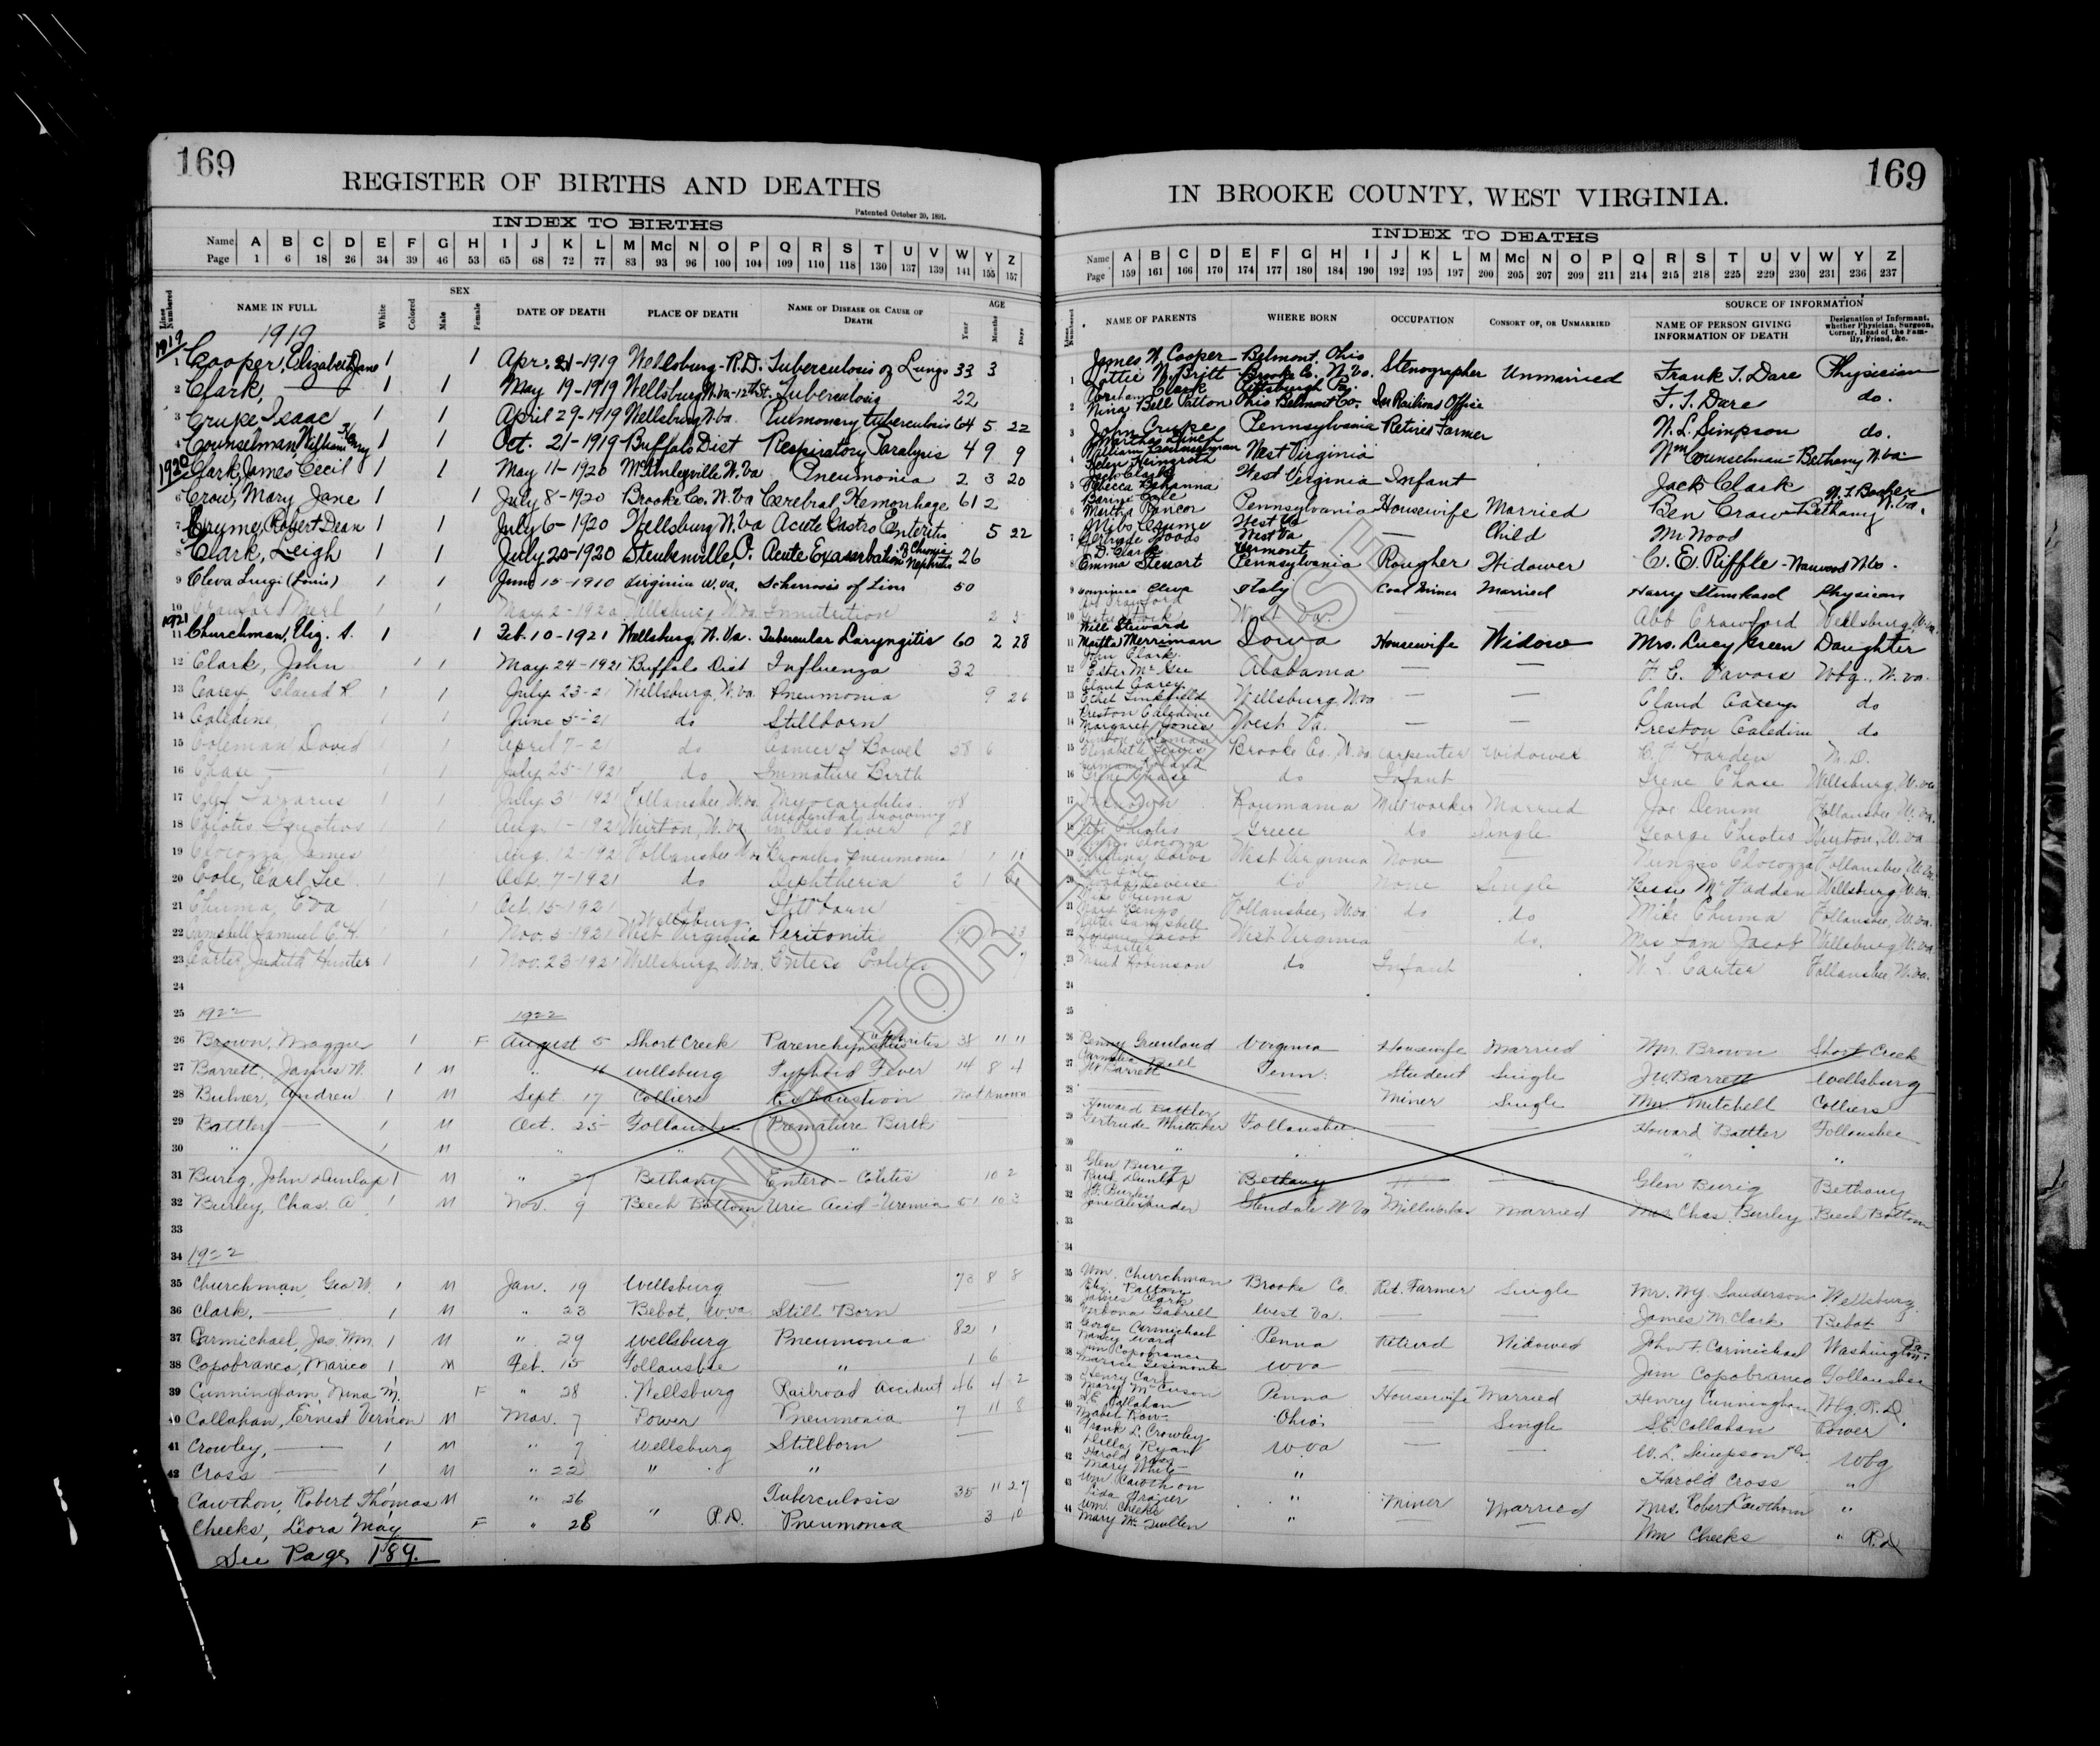 169
REGISTER OF BIRTHS AND DEATHS
Patented October 20, 1891.
INDEX TO BIRTHS
Name A B C D E F G H I J K L M Mc N O P Q R S T U V W Y Z
Page 1 6 18 26 34 39 46 53 65 68 72 77 83 93 96 100 104 109 110 118 130 137 139 141 155 157
Lines Numbered NAME IN FULL White Colored SEX Male Female DATE OF DEATH PLACE OF DEATH NAME OF DISEASE OR CAUSE OF DEATH AGE Year Months Days
1919
1919
1 Cooper, Elizabeth Jane 1 1 Apr. 21-1919 Wellsburg-R.D. Tuberculosis of Lungs 33 3
2 Clark, — 1 1 May 19-1919 Wellsburg W.Va-12th St. Tuberculosis 22
3 Crupe Isaac 1 1 April 29-1919 Wellsburg W.Va. Pulmonary tuberculosis 64 5 22
4 Counselman, William Henry 1 1 Oct. 21-1919 Buffalo Dist Respiratory Paralysis 4 9 9
1920 Clark, James Cecil 1 1 May 11-1920 McKinleyville W.Va Pneumonia 2 3 20
6 Crow, Mary Jane 1 1 July 8-1920 Brooke Co. W.Va Cerebral Hemorrhage 61 2
7 Cryme, Robert Dean 1 1 July 6-1920 Wellsburg W.Va Acute Gastro Enteritis 5 22
8 Clark, Leigh 1 1 July 20-1920 Steubenville, O. Acute Exasarbation of Chronic Nephritis 26
9 Cleva Luigi (Louis) 1 1 June 15-1910 Virginia W.Va. 50
10 Crawford Merl 1 1 May 2-1920 Wellsburg W.Va Innutrition 2 5
1921
11 Churchman, Eliz. S. 1 1 Feb. 10-1921 Wellsburg, W.Va. Tubercular Laryngitis 60 2 28
12 Clark, John 1 1 May 24-1921 Buffalo Dist Influenza 32
13 Carey, Claud R 1 1 July 23-21 Wellsburg, W.Va. Pneumonia 9 26
14 Caledine, 1 1 June 5-21 do Stillborn
15 Coleman David 1 1 April 7-21 do Cancer of Bowel 58 6
16 Chase — 1 1 July 25-1921 do Immature Birth
17 Lazarus 1 1 July 31-1921 Follansbee, W.Va. Myocarditis 48
18 Chiotis 1 Aug. 1-1921 Weirton, W.Va accidental drowning in Ohio River 28
19 Clocozza, James Aug. 12-1921 Follansbee W.Va Broncho pneumonia 1 11
20 Cole, Carl Lee 1 1 Oct. 7-1921 do Diphtheria 2 1
21 Chuma, Eva 1 Oct. 15-1921 do Stillborn
22 Campbell, Samuel C. H. 1 1 Nov. 3-1921 Wellsburg West Virginia Peritonitis 23
23 Carter, Judith Hunter 1 1 Nov. 23-1921 Wellsburg, W.Va. Entero Colitis 7
24
25 1922 1922
26 Brown, Maggie 1 F August 5 Short Creek Parenchymatous Nephritis 38 11 11
27 Barrett, James W. 1 M " 11 Wellsburg Typhoid Fever 14 8 4
28 Bulver, Andrew 1 M Sept. 17 Colliers Exhaustion not known
29 Battler, — 1 M Oct. 25 Follansbee Premature Birth
30 " 1 M " " "
31 Burig, John Dunlap 1 M " 27 Bethany Entero-Colitis 10 2
32 Burley, Chas. A 1 M Nov. 9 Beech Bottom Uric Acid-Uremia 51 10 3
33
34 1922
35 Churchman, Geo W. 1 M Jan. 19 Wellsburg — 73 8 8
36 Clark, — 1 M " 23 Bebot, W.Va Still Born
37 Carmichael, Jas. Wm. 1 M " 29 Wellsburg Pneumonia 82 1
38 Copobranco, Marico 1 M Feb. 15 Follansbee " 1 6
39 Cunningham, Nina M. 1 F " 28 Wellsburg Railroad Accident 46 4 2
40 Callahan, Ernest Vernon 1 M Mar. 7 Power Pneumonia 7 11 8
41 Crowley, — 1 M " 7 Wellsburg Stillborn —
42 Cross — 1 M " 22 " "
Cawthon, Robert Thomas 1 M " 26 Tuberculosis 35 11 27
Cheeks, Leora May 1 F " 28 " R.D. Pneumonia 3 10
See Page 189.
169
IN BROOKE COUNTY, WEST VIRGINIA.
INDEX TO DEATHS
Name A B C D E F G H I J K L M Mc N O P Q R S T U V W Y Z
Page 159 161 166 170 174 177 180 184 190 192 195 197 200 205 207 209 211 214 215 218 225 229 230 231 236 237
Lines Numbered NAME OF PARENTS WHERE BORN OCCUPATION CONSORT OF, OR UNMARRIED SOURCE OF INFORMATION NAME OF PERSON GIVING INFORMATION OF DEATH Designation of Informant, whether Physician, Surgeon, Corner, Head of the Family, Friend, &c.
James W. Cooper Belmont, Ohio
1 Lottie N. Britt Brooke Co. W.Va. Stenographer Unmarried Frank T. Dare Physician
Abraham Clark Pittsburgh Pa.
2 Nina Bell Patton Ohio Belmont Co. In Railroad Office F. T. Dare do.
3 John Crupe Pennsylvania Retired Farmer W. L. Simpson do.
Martha Lynch
4 William Counselman West Virginia Wm Counselman-Bethany W.Va.
Helen Heingroth
5 Jack Clark West Virginia Infant Jack Clark
Rebecca Bohanna
6 Martha Rancor Pennsylvania Housewife Married Ben Crow Bethany W.Va.
Mibs Cryme West Va
7 Gertrude Woods West Va — Child Mr. Wood
D. Clark Vermont
8 Emma Stewart Pennsylvania Rougher Widower C. E. Riffle-Warwood W.Va.
9 Dominica Cleva Italy Coal Miner Married Harry Physician
10 West Va. — — Abb Crawford Wellsburg, W.Va.
Will Steward
11 Martha Merriman Iowa Housewife Widow Mrs. Lucy Green Daughter
John Clark
12 Ester McGee Alabama — F. E. Favors Wbg., W.Va.
Claud Carey
13 Ethel Linkfield Wellsburg, W.Va — — Claud Carey do
Preston Caledine
14 Margaret Jones West Va. — — Preston Caledine do
15 Elizabeth Lewis Brooke Co. W.Va. carpenter widower Harden M.D.
16 Irene Chase do Infant Irene Chase Wellsburg, W.Va.
17 Unknown Roumania Millworker Married Joe Follansbee, W.Va.
18 Pete Chiotis Greece do Single George Chiotis Weirton, W.Va
19 West Virginia None — Nunzio Clocozza Follansbee, W.Va.
20 do None Single Bessie McFadden Wellsburg, W.Va.
Mike Chuma
21 Follansbee, W.Va. do do Mike Chuma Follansbee, W.Va.
22 West Virginia do. Mrs Sam Jacob Wellsburg, W.Va.
23 Maud Robinson do Infant W. L. Carter Follansbee W.Va.
24
25
26 Benny Greenland Virginia Housewife Married Wm. Brown Short Creek
27 JW Barrett Tenn. Student Single JW Barrett Wellsburg
28 — Miner Single Wm. Mitchell Colliers
Howard Battler
29 Gertrude Whittiker Follansbee — — Howard Battler Follansbee
30 " " " "
Glen Burig
31 Ruth Dunlap Bethany — Glen Burig Bethany
32 Jane Alexander Glendale W.Va Millworker Married Mrs Chas. Burley Beech Bottom
33
34
Wm. Churchman
35 Eliz. Patton Brooke Co. Ret. Farmer Single Mr. Wy. Sanderson Wellsburg
James Clark
36 Verbona Gabrell West Va. — — James M. Clark Bebot
George Carmichael
37 Nancy Ward Penna Retired Widowed John F. Carmichael Washington Pa.
Jim Copobranco
38 WVa — Jim Copobranco Follansbee
Henry Carl
39 Mary McCuson Penna Housewife Married Henry Cunningham Wbg. R.D.
S.E. Callahan
40 Mabel Row Ohio — Single S.E. Callahan Power
Frank L. Crowley
41 Della Ryan WVa — — W. L. Simpson Dr. Wbg
Harold Cross
42 Mary White " Harold Cross "
Wm. Cawthon
43 Lida Frazier " Miner Married Mrs. Robert Cawthon "
Wm. Cheeks
44 Mary McQuillen " — — Wm Cheeks " R.D.
NOT FOR LEGAL USE